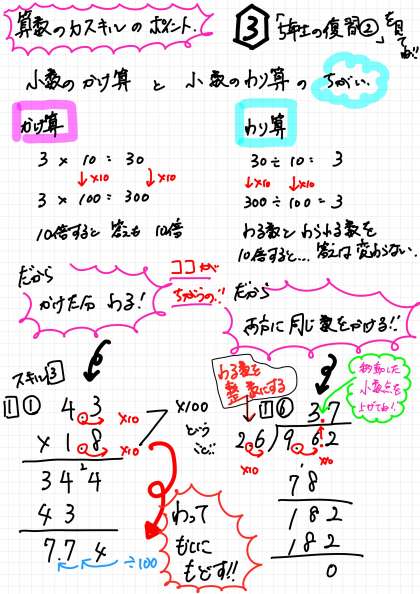 算数のカスキルのポイント.
③「3年生の復習②」を見てね!!
小数のかけ算 と 小数のわり算の ちがい.
かけ算
3 × 10 = 30
↓×10 ↓×10
3 × 100 = 300
10倍すると 答えも 10倍
わり算
30 ÷ 10 = 3
↓×10 ↓×10
300 ÷ 100 = 3
わる数とわられる数を
10倍すると… 答えは変わらない.
だから
かけた分 わる!
ココが
ちがうの!!
だから
両方に同じ数をかける!!
スキル3
1 ① 4.3 ×10
× 1.8 ×10
3 4 2 4
4 3
7.7 4 ÷100
×100
という
こと.
わって
もとに
もどす!!
わる数を
整数にする
1 ⑥ 3.7
2.6)9.6 2
×10 ×10
7 8
1 8 2
1 8 2
0
移動した
小数点を
上げてね!